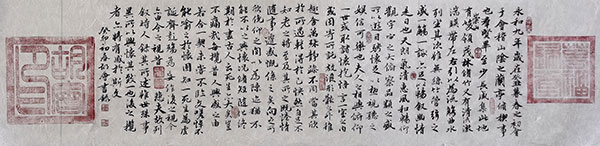 永和九年歲在癸丑暮春之初會
于會稽山陰之蘭亭脩禊事
也羣賢畢至少長咸集此地
有崇山峻領茂林脩竹又有清流激
湍暎帶左右引以為流觴曲水
列坐其次雖無絲竹管弦之
盛一觴一詠亦足以暢敘幽情
是日也天朗氣清惠風和暢仰
觀宇宙之大俯察品類之盛
所以遊目騁懷足以極視聽之
娛信可樂也夫人之相與俯仰
一世或取諸懷抱悟言一室之內
或因寄所託放浪形骸之外雖
趣舍萬殊靜躁不同當其欣
於所遇暫得於己快然自足不
知老之將至及其所之既惓情
隨事遷感慨係之矣向之所
欣俛仰之間以為陳迹猶不
能不以之興懷況脩短隨化終
期於盡古人云死生亦大矣豈
不痛哉每攬昔人興感之由
若合一契未嘗不臨文嗟悼不
能喻之於懷固知一死生為虛
誕齊彭殤為妄作後之視今
亦由今之視昔悲夫故列
敘時人錄其所述雖世殊事
異所以興懷其致一也後之攬
者亦將有感於斯文
初春